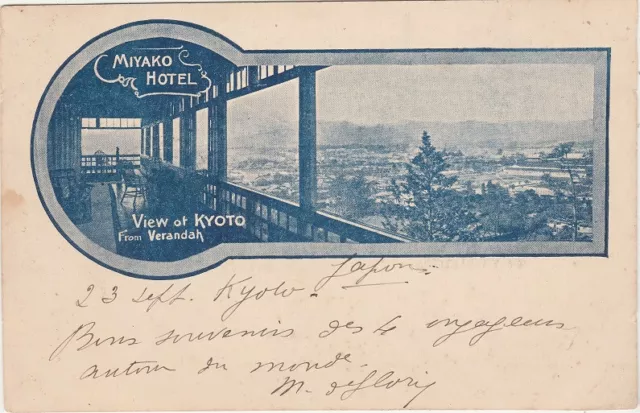 MIYAKO
HOTEL
VIEW of KYOTO
From Verandah
23 sept. Kyoto - Japon.
Bons souvenirs des 4 voyageurs
autour du monde.
M.